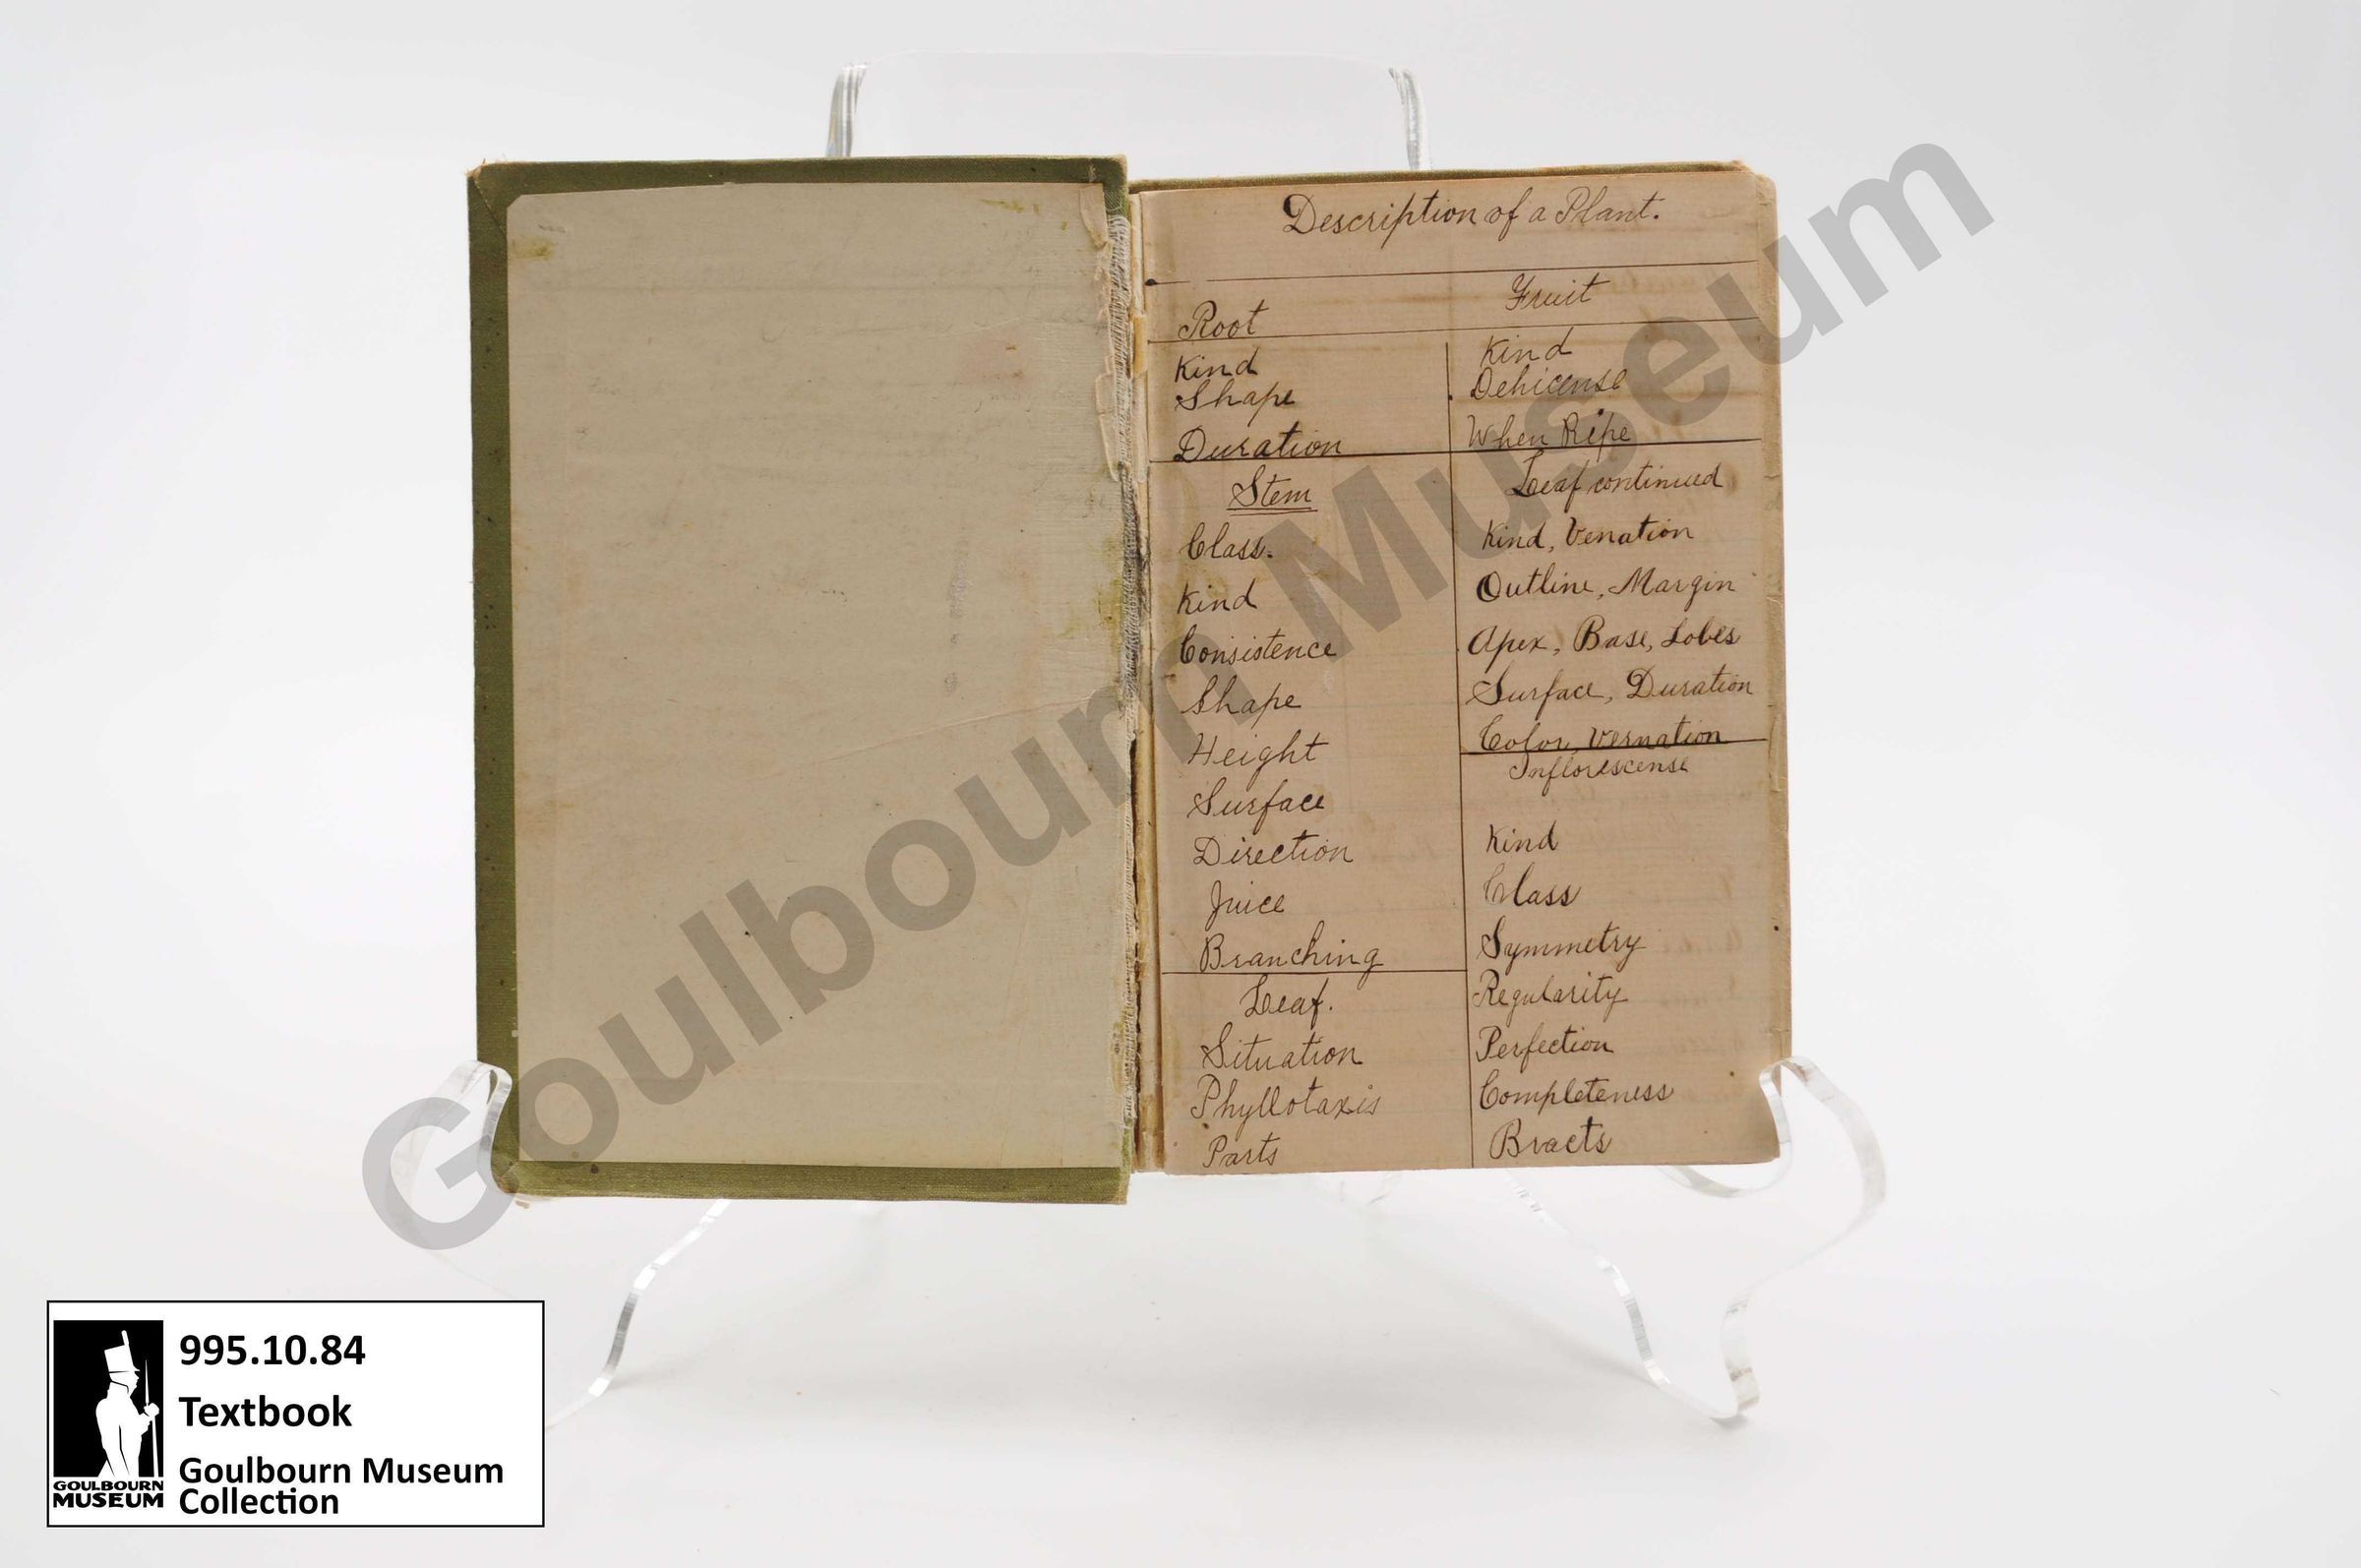 Description of a Plant.
Root
Kind
Shape
Duration
Stem
Class.
Kind
Consistence
Shape
Height
Surface
Direction
Juice
Branching
Leaf.
Situation
Phyllotaxis
Parts
Fruit
Kind
Dehicense
When Ripe
Leaf continued
Kind, Venation
Outline, Margin
Apex, Base, Lobes
Surface, Duration
Color, Vernation
Inflorescense
Kind
Class
Symmetry
Regularity
Perfection
Completeness
Bracts
Goulbourn Museum
995.10.84
Textbook
Goulbourn Museum
Collection
GOULBOURN
MUSEUM